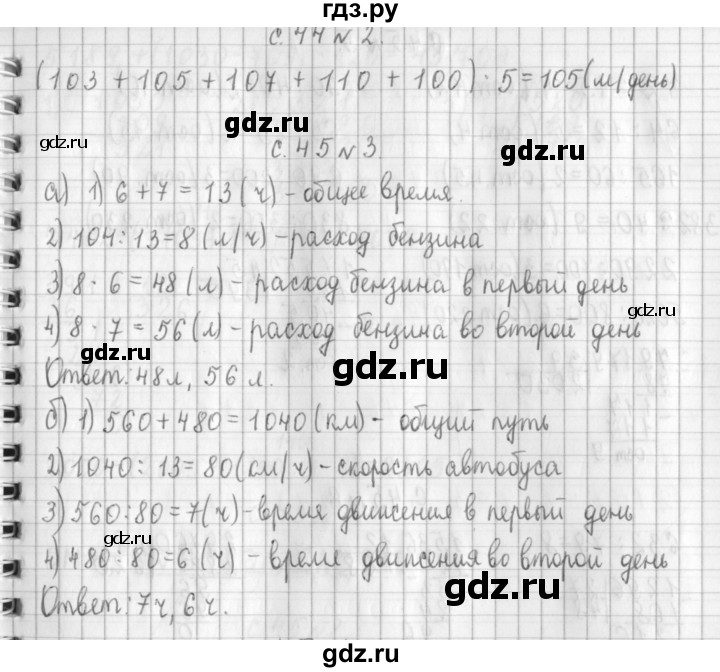 гдз.ру
с. 44 № 2.
(103 + 105 + 107 + 110 + 100) : 5 = 105 (м/день)
gdz.ru
gdz.ru gdz.ru
с. 45 № 3.
а) 1) 6 + 7 = 13 (ч) - общее время.
2) 104 : 13 = 8 (л/ч) - расход бензина
3) 8 · 6 = 48 (л) - расход бензина в первый день
gdz.ru
4) 8 · 7 = 56 (л) - расход бензина во второй день
gdz.ru gdz.ru
Ответ: 48 л, 56 л.
gdz.ru
б) 1) 560 + 480 = 1040 (км) - общий путь
2) 1040 : 13 = 80 (см/ч) - скорость автобуса
gdz.ru
3) 560 : 80 = 7 (ч) - время движения в первый день
gdz.ru
4) 480 : 80 = 6 (ч) - время движения во второй день
gdz.ru
Ответ: 7 ч, 6 ч.
gdz.ru